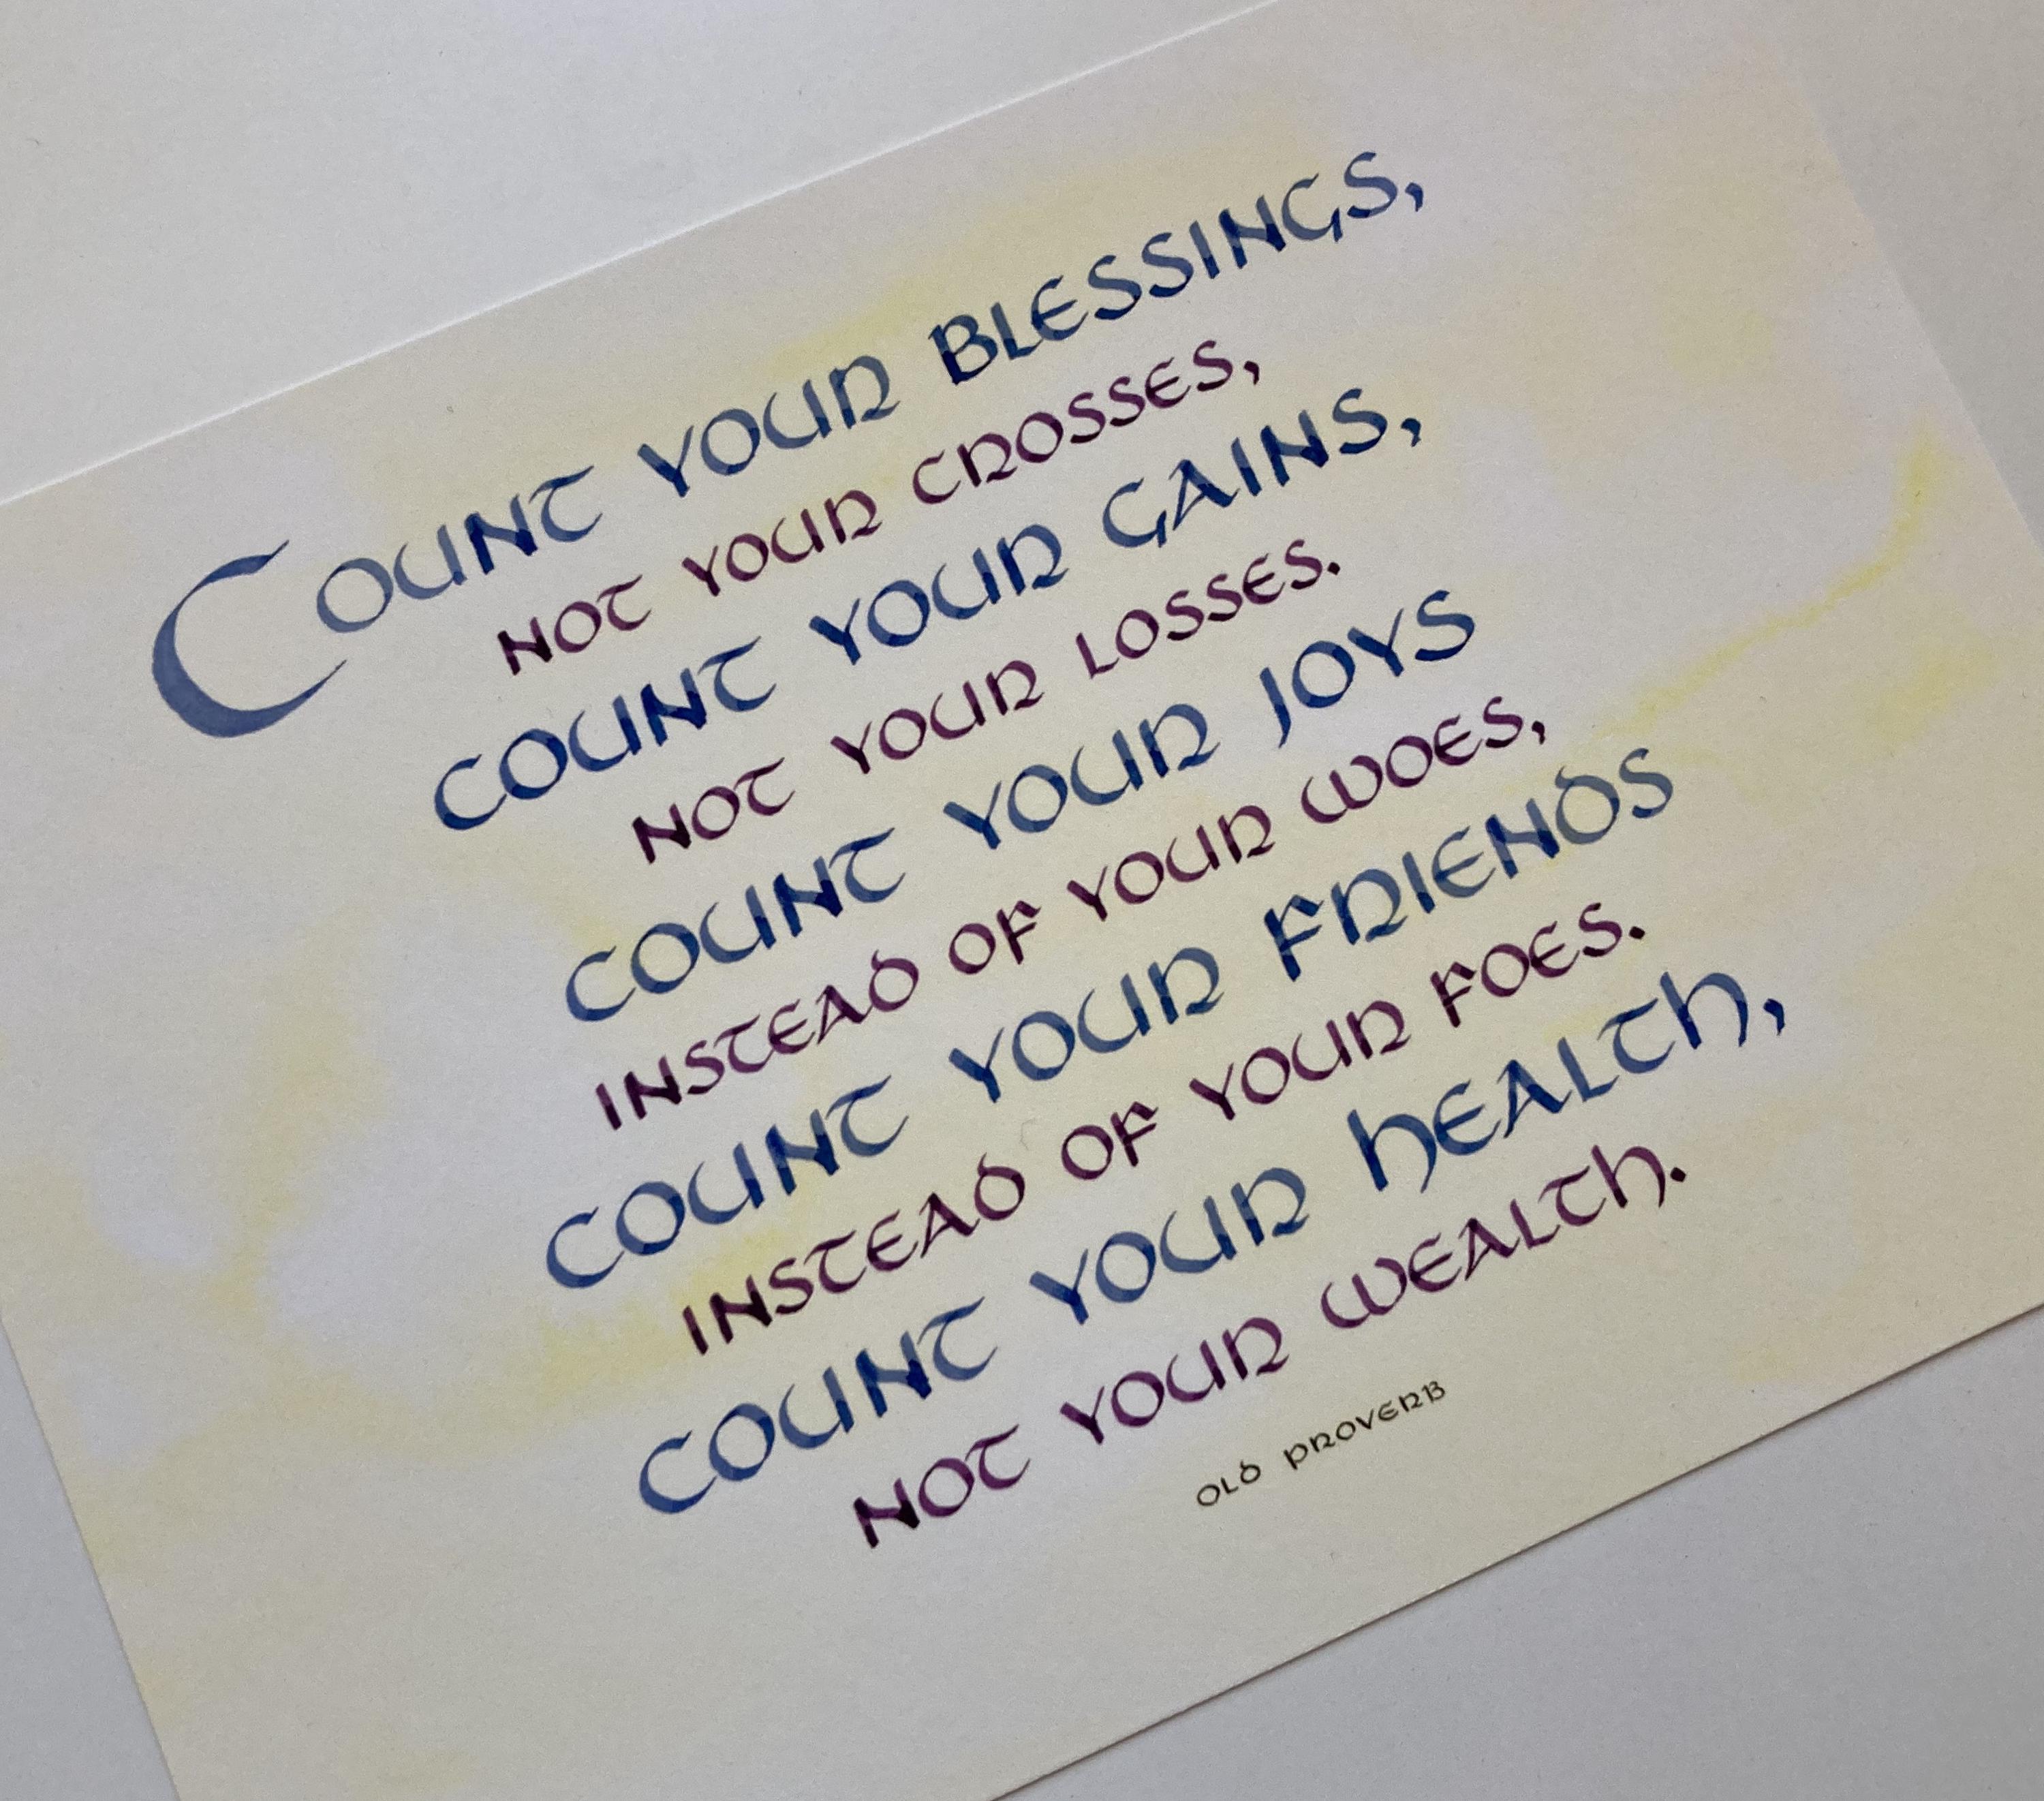 Count your blessings,
not your crosses,
count your gains,
not your losses.
count your joys
instead of your woes,
count your friends
instead of your foes.
count your health,
not your wealth.
old proverb